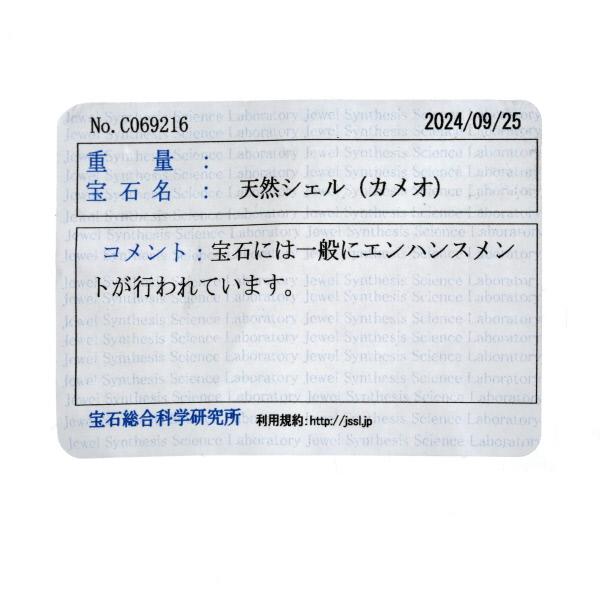 No.C069216 2024/09/25
重　量　：
宝石名　：　天然シェル（カメオ）
コメント：宝石には一般にエンハンスメン
トが行われています。
宝石総合科学研究所　利用規約:http://jssl.jp
Jewel Synthesis Science Laboratory